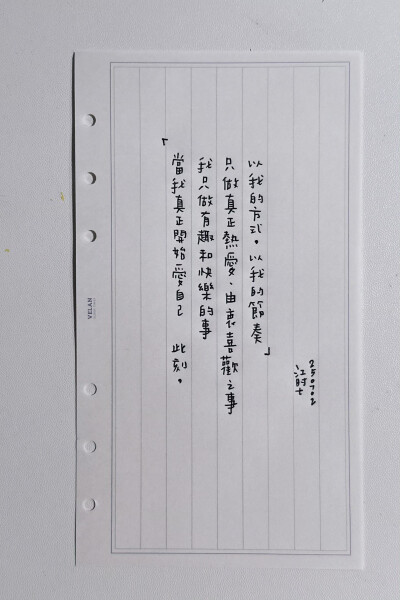 「當我真正開始愛自己 此刻。
我只做有趣和快樂的事
只做真正熱愛、由衷喜歡之事
以我的方式。以我的節奏」
250702
VELAN